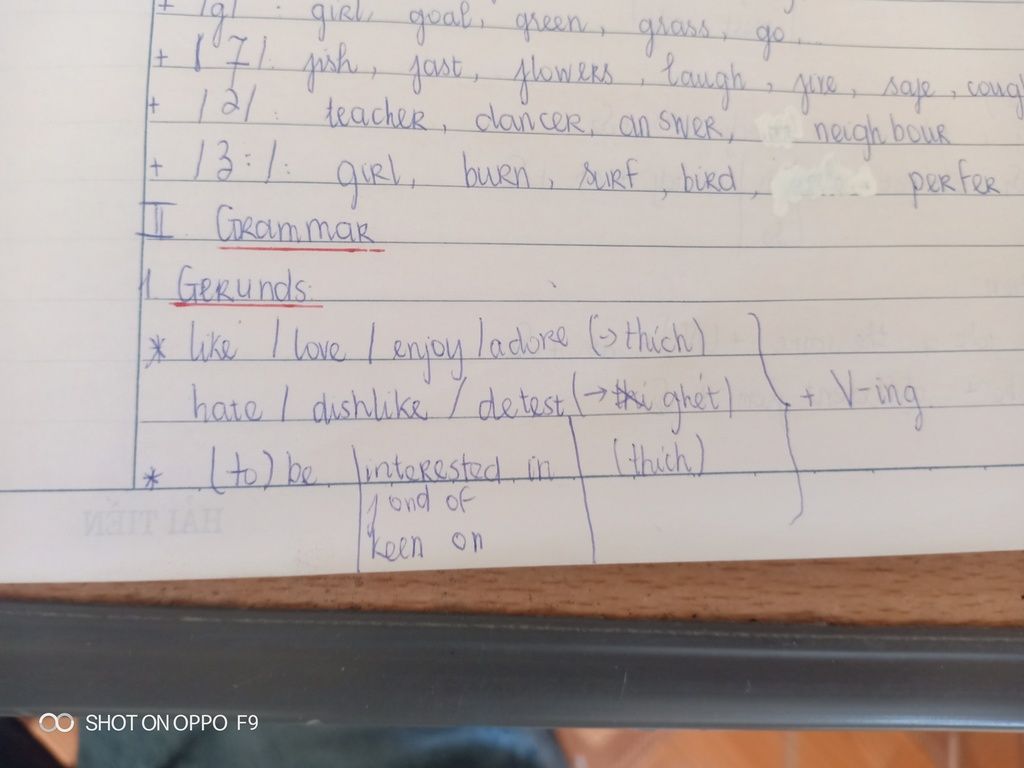 + /g/ : girl, goal, green, grass, go...
+ /f/: fish, fast, flowers, laugh, fire, safe, cough
+ /ə/: teacher, dancer, answer, neighbour
+ /ɜ:/: girl, burn, surf, bird, perfer
II Grammar
1 Gerunds:
* like / love / enjoy / adore (→ thích)
hate / dishlike / detest (→ ghét) + V-ing
* (to) be interested in (thích)
fond of
keen on
HẢI TIẾN
SHOT ON OPPO F9